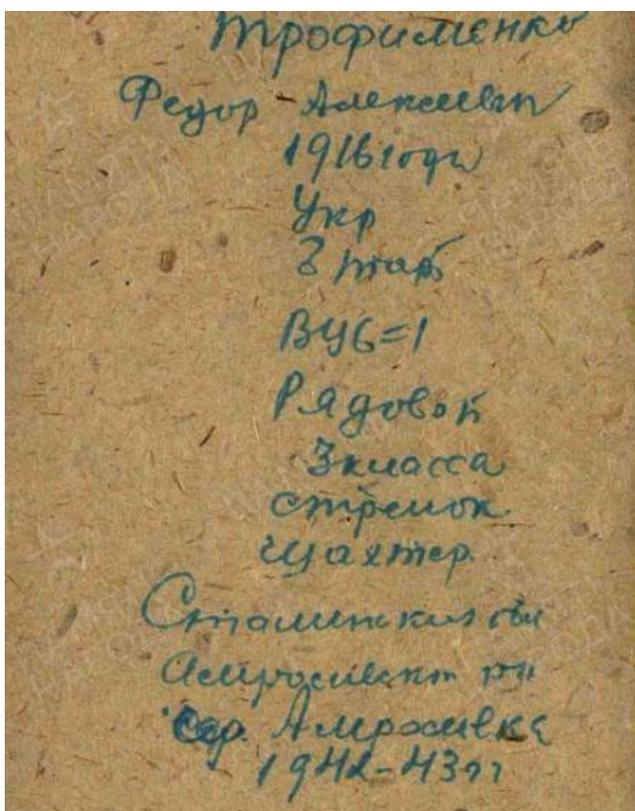 Трофименко
Федор Алексеевич
1916 года
Укр
ВУС=1
Рядовой
3 класса
стрелок
шахтер
Сталинская обл
Амвросиевский рн
Амвросиевка
1942-43гг